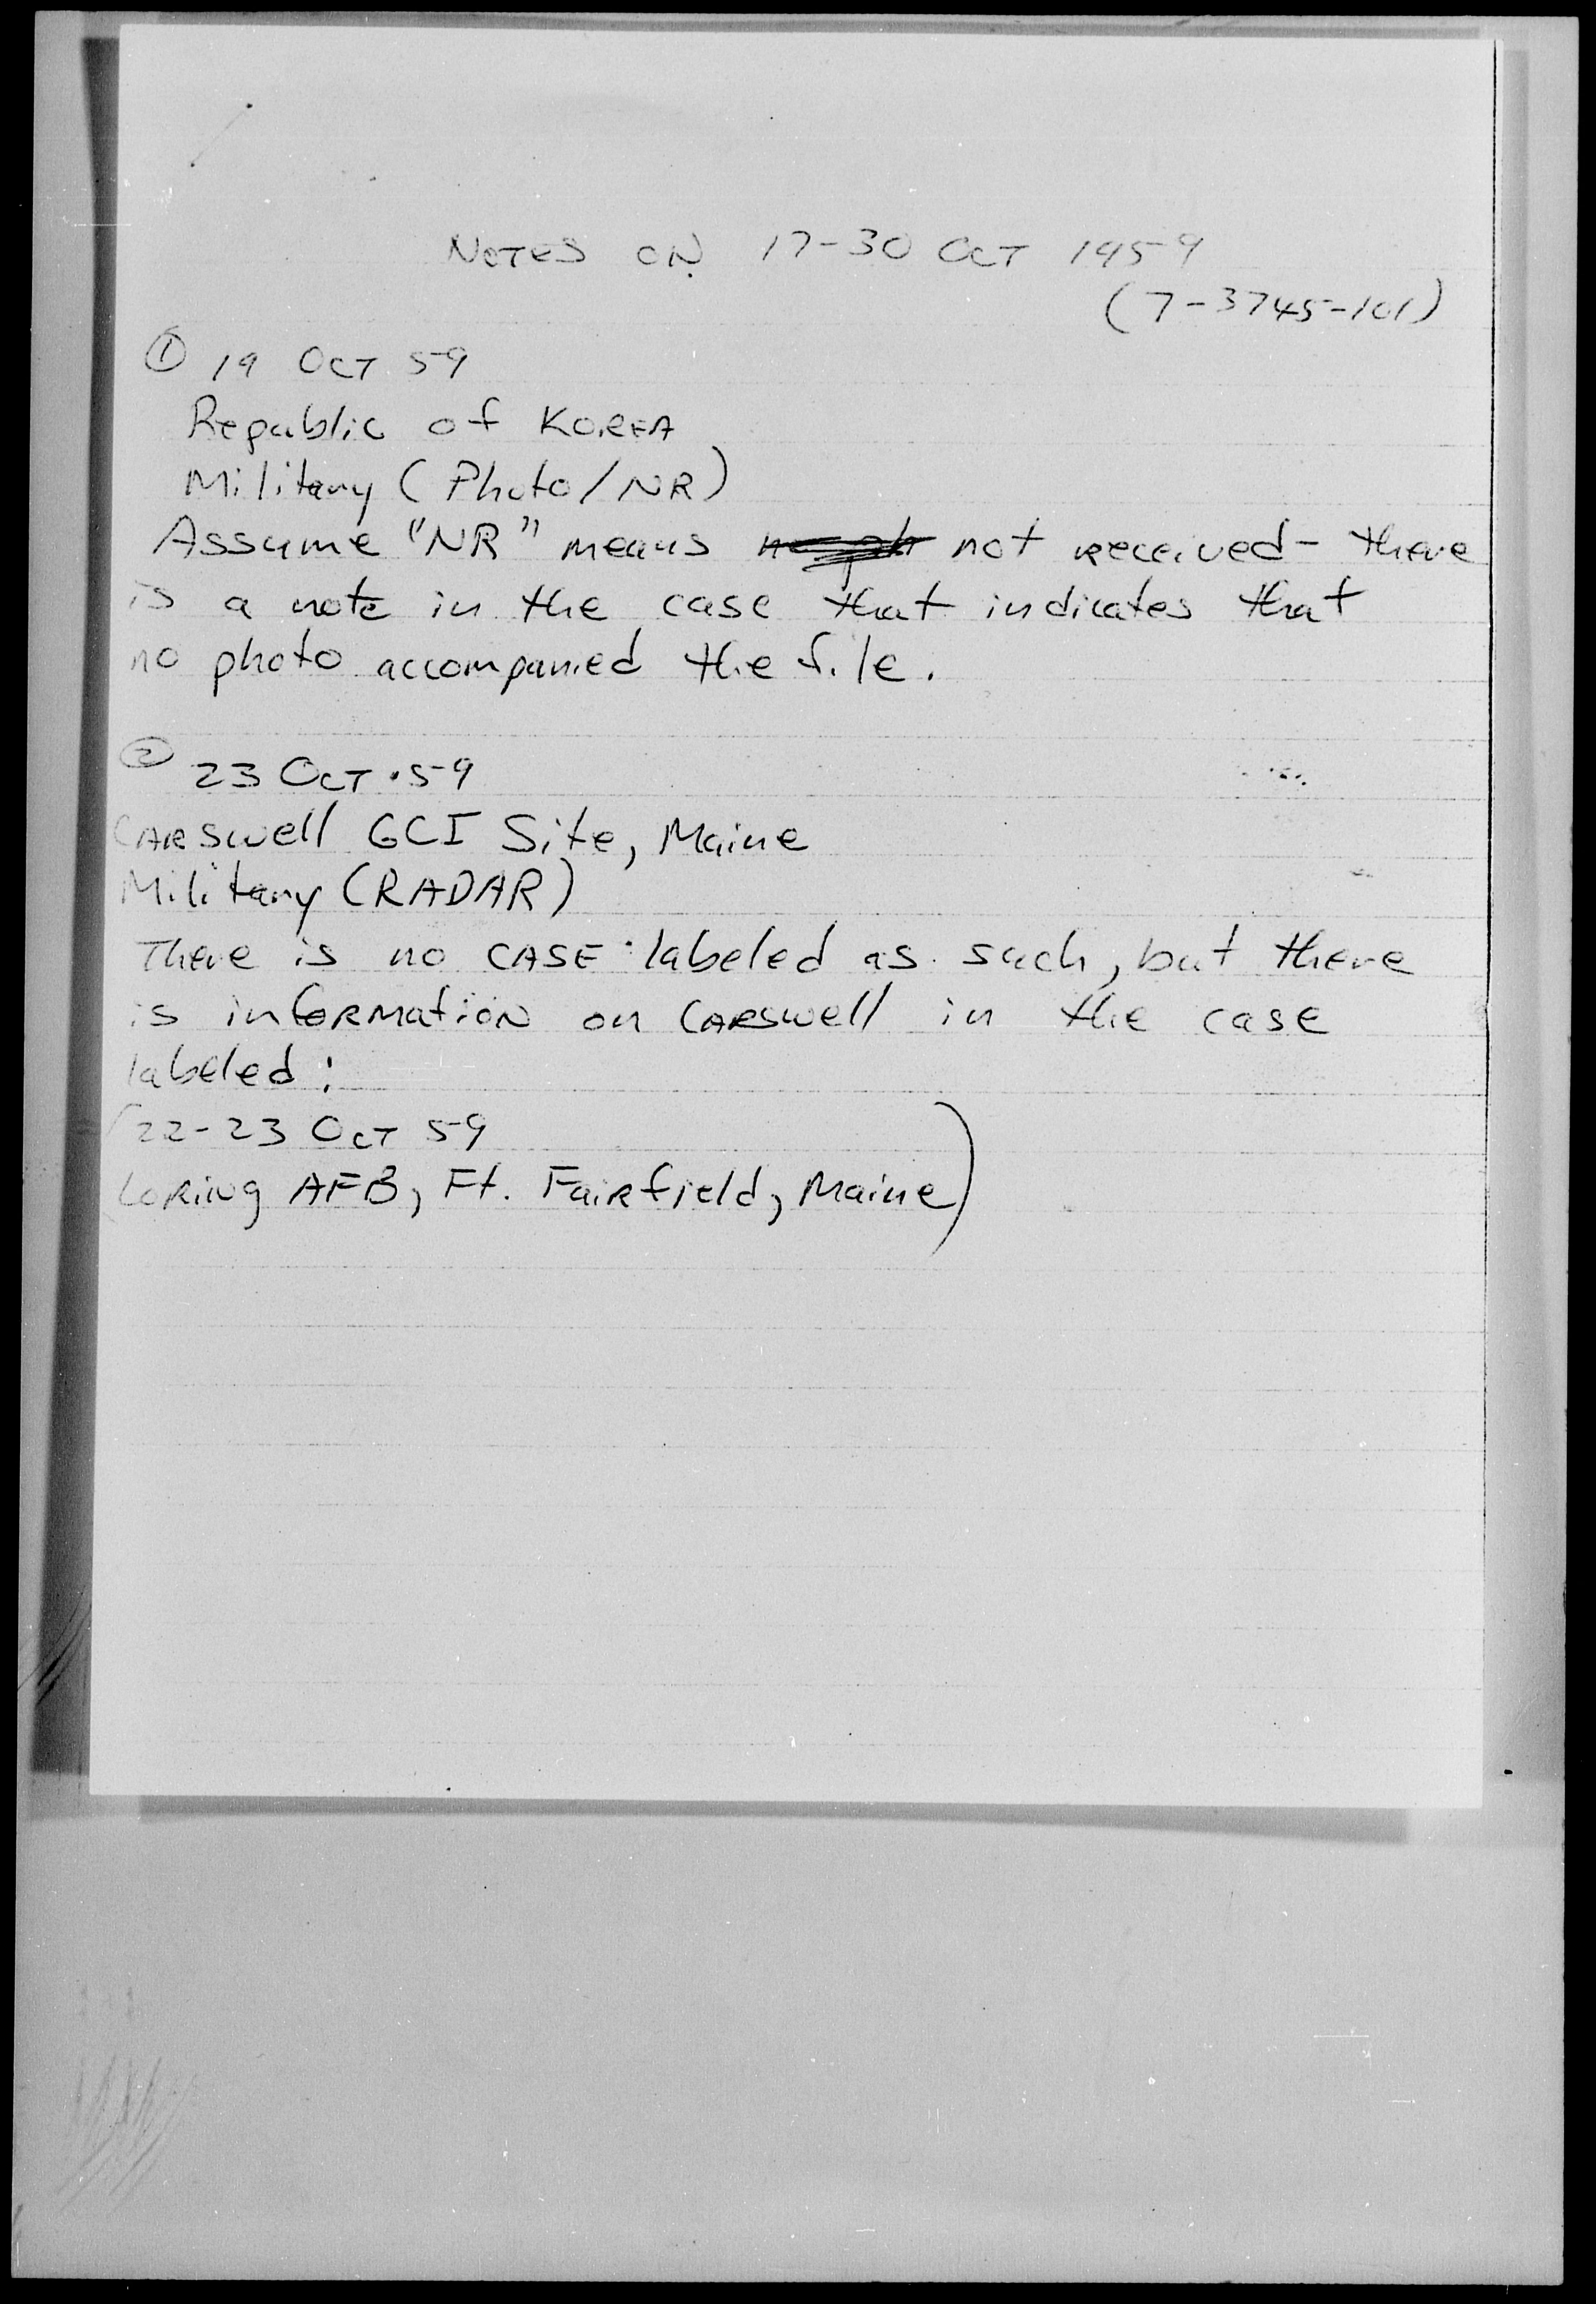 NOTES ON 17-30 OCT 1959
(7-3745-101)
① 19 OCT 59
Republic of KOREA
Military (Photo/NR)
Assume "NR" means not received - there
is a note in the case that indicates that
no photo accompanied the file.
② 23 OCT 59
CARSwell GCI Site, Maine
Military (RADAR)
There is no CASE labeled as such, but there
is inFORMatiON on CARSwell in the case
labeled:
(22-23 OCT 59
LORiNg AFB, Ft. FaiRfield, Maine)